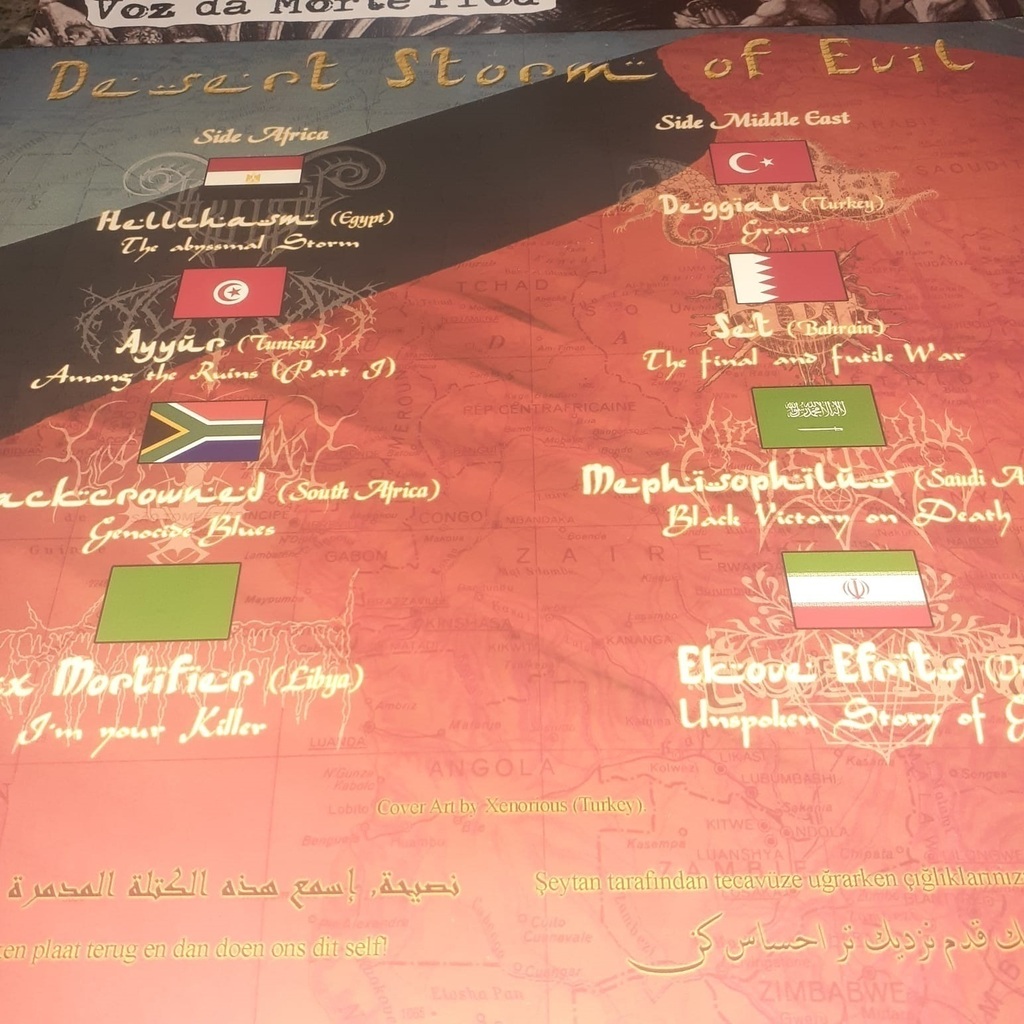 Voz da Morte Prod
Desert Storm of Evil
Side Africa
Hellchasm (Egypt)
The abyssmal Storm
Ayyur (Tunisia)
Among the Ruins (Part I)
ackcrowned (South Africa)
Genocide Blues
x Mortifier (Libya)
I'm your Killer
Side Middle East
Deggial (Turkey)
Grave
Set (Bahrain)
The final and futile War
Mephisophilus (Saudi A
Black Victory on Death
Ekove Efrits
Unspoken Story of
Cover Art by Xenorious (Turkey).
نصيحة, إسمع هذه الكتلة المدمرة
ten plaat terug en dan doen ons dit self!
Şeytan tarafından tecavüze uğrarken çığlıklarınız
ك قدم نزديك تر احساس كن
TCHAD
REP CENTRAFRICAINE
CONGO
GABON
ZAIRE
KINSHASA
KANANGA
LUANDA
ANGOLA
LIKASI
LUBUMBASHI
KITWE
NDOLA
LUANSHYA
ZAMB
Etosha Pan
ZIMBABWE